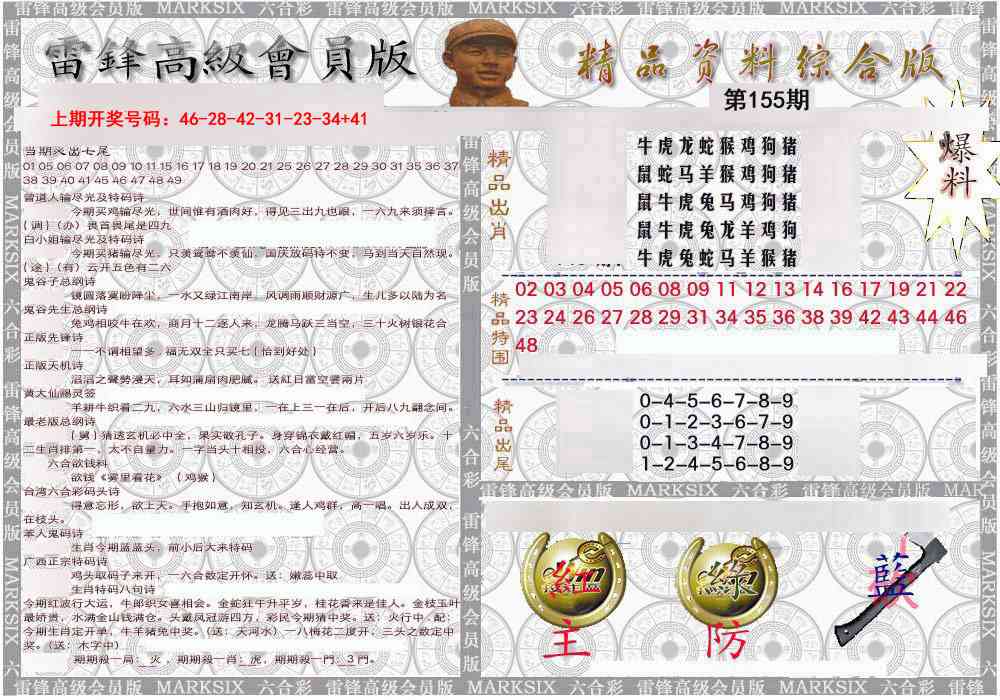 雷锋高级会员版 MARKSIX 六合彩 雷锋高级会员版 MARKSIX 六合彩 雷锋高级会员版 MARKSIX 六合彩 雷锋
雷鋒高級會員版
精品资料综合版
第155期
上期开奖号码：46-28-42-31-23-34+41
01 05 06 07 08 09 10 11 15 16 17 18 19 20 21 25 26 27 28 29 30 31 35 36 37
38 39 40 41 45 46 47 48 49
曾道人输尽光及特码诗
今期买鸡输尽光，世间惟有酒肉好，得见三出九也跟，一六九来须择言。
(调) (办) 畏首畏尾是四九
白小姐输尽光及特码诗
今期买猪输尽光，只羡鸳鸯不羡仙，国庆放码特不变，马到当天自然现。
(途) (有) 云开五色有二六
鬼谷子总纲诗
镜圆落窝盼降尘，一水又绿江南岸，风调雨顺财源广，生儿多以陆为名
鬼谷先生总纲诗
兔鸡相咬牛在欢，商月十二逐人来，龙腾马跃三当空，三十火树银花合
正版先锋诗
----不谓相望多，福无双全只买七(恰到好处)
正版天机诗
滔滔之聲勢漫天，耳如蒲扇肉肥腻。送紅日富空雲兩片
黄大仙赐灵签
羊耕牛织看二九，六水三山归镜里，一在上三一在后，开后八九翻念间。
最老版总纲诗
(舅) 猜透玄机必中全，果实敬孔子。身穿锦衣戴红帽，五岁六岁乐。十
二生肖排第一，太不自量力。一字当头十相投，六合心经营。
六合欲钱料
欲钱《雾里看花》 (鸡猴)
台湾六合彩码头诗
得意忘形，欲上天。手抱如意，知玄机。逢人鸡群，高一唱。出人成双，
在枝头。
本人鬼码诗
生肖今期蓝蓝头，前小后大来特码
广西正宗特码诗
鸡头取码子来开，一六合数定开怀。送：嫩蕊中取
生肖特码八句诗
今期红波行大运，牛郎织女喜相会。金蛇狂午升平岁，桂花香来是佳人。金枝玉叶
最娇贵，水满金山钱满仓。头戴凤冠游四方，彩民今期猜中奖。送：火行中．配：
今期生肖定开单，牛羊猪兔中奖。(送：天河水) 一八梅花二度开，三头之数定中
奖。(送：木字中)
期期殺一局：火，期期殺一肖：虎，期期殺一門：3門。
精品出肖
牛虎龙蛇猴鸡狗猪
鼠蛇马羊猴鸡狗猪
鼠牛虎兔马鸡狗猪
鼠牛虎兔龙羊鸡狗
牛虎兔蛇马羊猴猪
爆料
精品特围
02 03 04 05 06 08 09 11 12 13 14 16 17 19 21 22
23 24 26 27 28 29 31 34 35 36 38 39 42 43 44 46
48
精品出尾
0-4-5-6-7-8-9
0-1-2-3-6-7-9
0-1-3-4-7-8-9
1-2-4-5-6-8-9
雷锋高级会员版 MARKSIX 六合彩 雷锋高级会员版 MARK
紅
主
綠
防
藍
雷锋高级会员版 MARKSIX 六合彩 雷锋高级会员版 MARKSIX 六合彩 雷锋高级会员版 MARKSIX 六合彩 雷锋